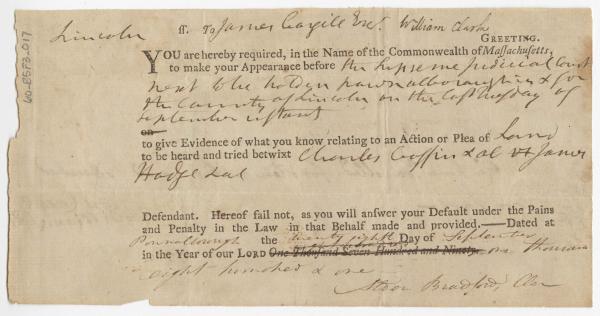 60-ESF3-017
Lincoln ss. To James Cargill Esqr. William Clark
GREETING.
YOU are hereby required, in the Name of the Commonwealth of Massachusetts,
to make your Appearance before the Supreme Judicial Court
next to be holden pownalborough in & for
the county of Lincoln on the last tuesday of
september instant
on
to give Evidence of what you know relating to an Action or Plea of Land
to be heard and tried betwixt Charles Coffin & al vs James
Hodge & al
Defendant. Hereof fail not, as you will answer your Default under the Pains
and Penalty in the Law in that Behalf made and provided.—Dated at
Pownalborough the twenty eighth Day of September
in the Year of our LORD One Thousand Seven Hundred and Ninety one thousand
eight hundred & one
Bradford, Cler